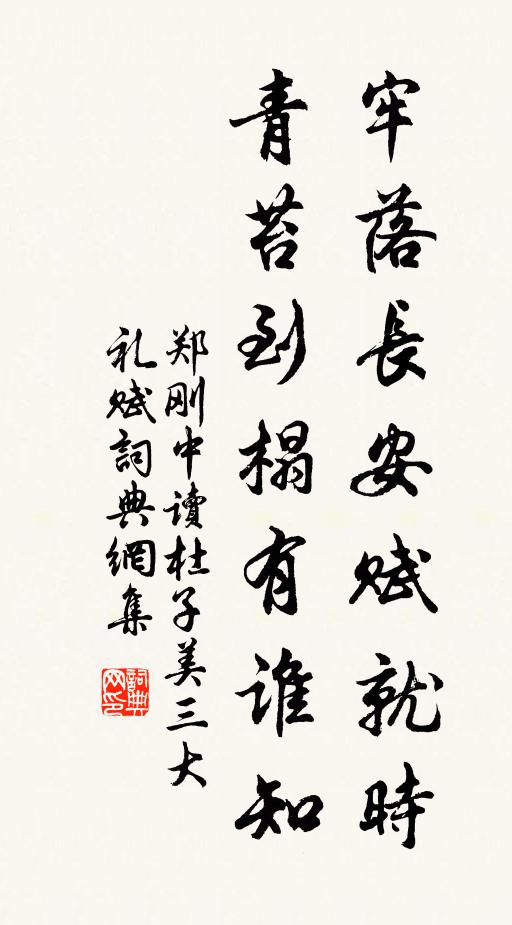 牢落長安賦就時
青苔到榻有誰知
郑刚中讀杜子美三大
礼赋詞典網集
詞典网印